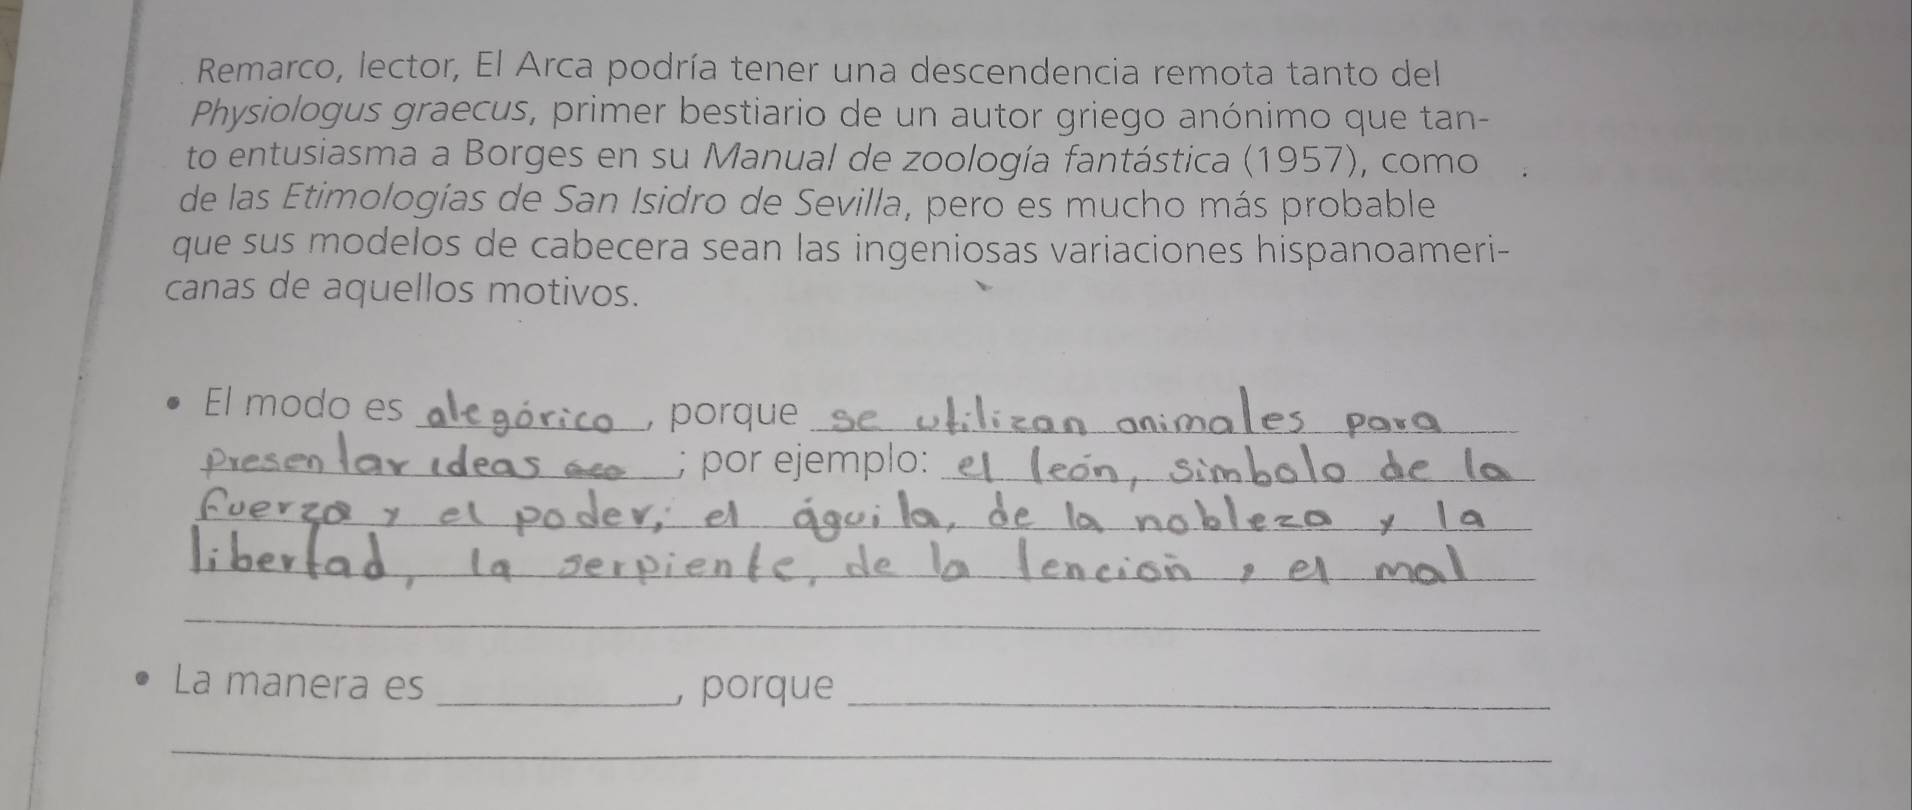 Remarco, lector, El Arca podría tener una descendencia remota tanto del
Physiologus graecus, primer bestiario de un autor griego anónimo que tan-
to entusiasma a Borges en su Manual de zoología fantástica (1957), como
de las Etimologías de San Isidro de Sevilla, pero es mucho más probable
que sus modelos de cabecera sean las ingeniosas variaciones hispanoameri-
canas de aquellos motivos.
• El modo es alegórico, porque se utilizan animales para
presentar ideas ; por ejemplo: el león, simbolo de la
fuerza y el poder, el águila, de la nobleza y la
libertad, la serpiente, de la tención, el mal
• La manera es ____________, porque ____________